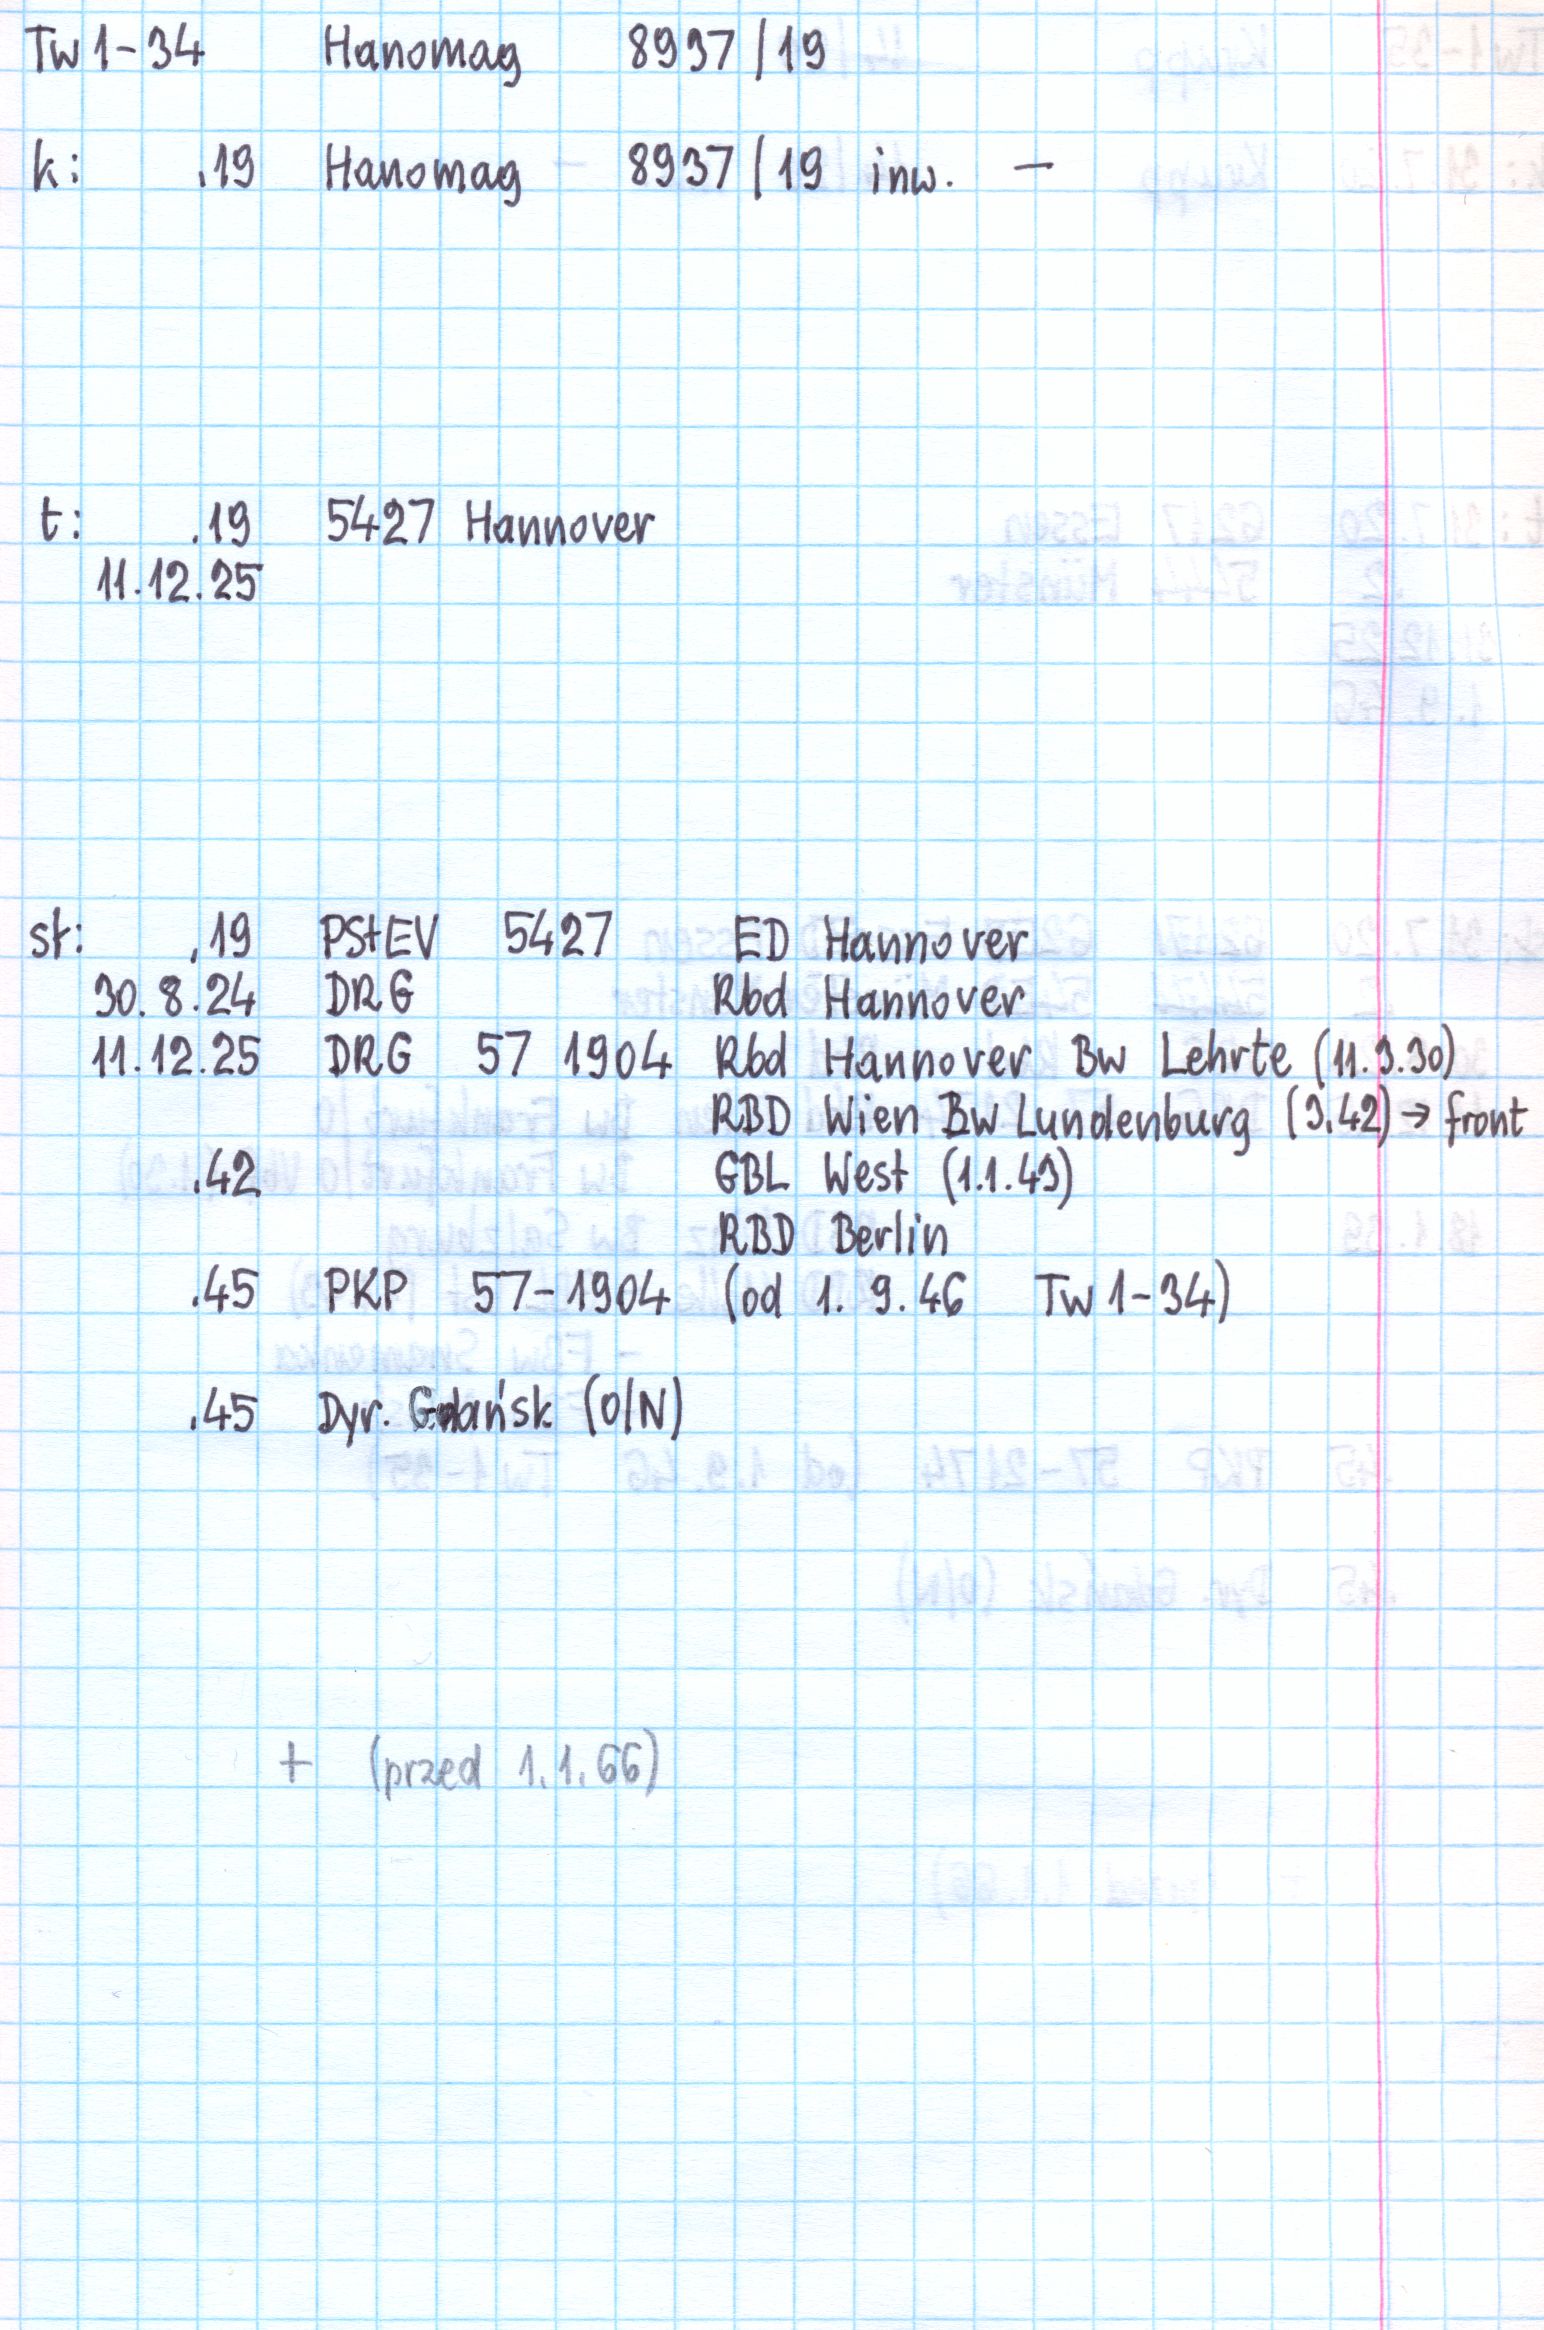 Tw 1-34 Hanomag 8937/19
k: .19 Hanomag 8937/19 inw. —
t: .19 5427 Hannover
11.12.25
st: .19 PStEV 5427 ED Hannover
30.8.24 DRG Rbd Hannover
11.12.25 DRG 57 1904 Rbd Hannover Bw Lehrte (11.3.30)
RBD Wien Bw Lundenburg (3.42) → front
.42 GBL West (1.1.43)
RBD Berlin
.45 PKP 57-1904 (od 1.9.46 Tw 1-34)
.45 Dyr. Gdańsk (O/N)
+ (przed 1.1.66)